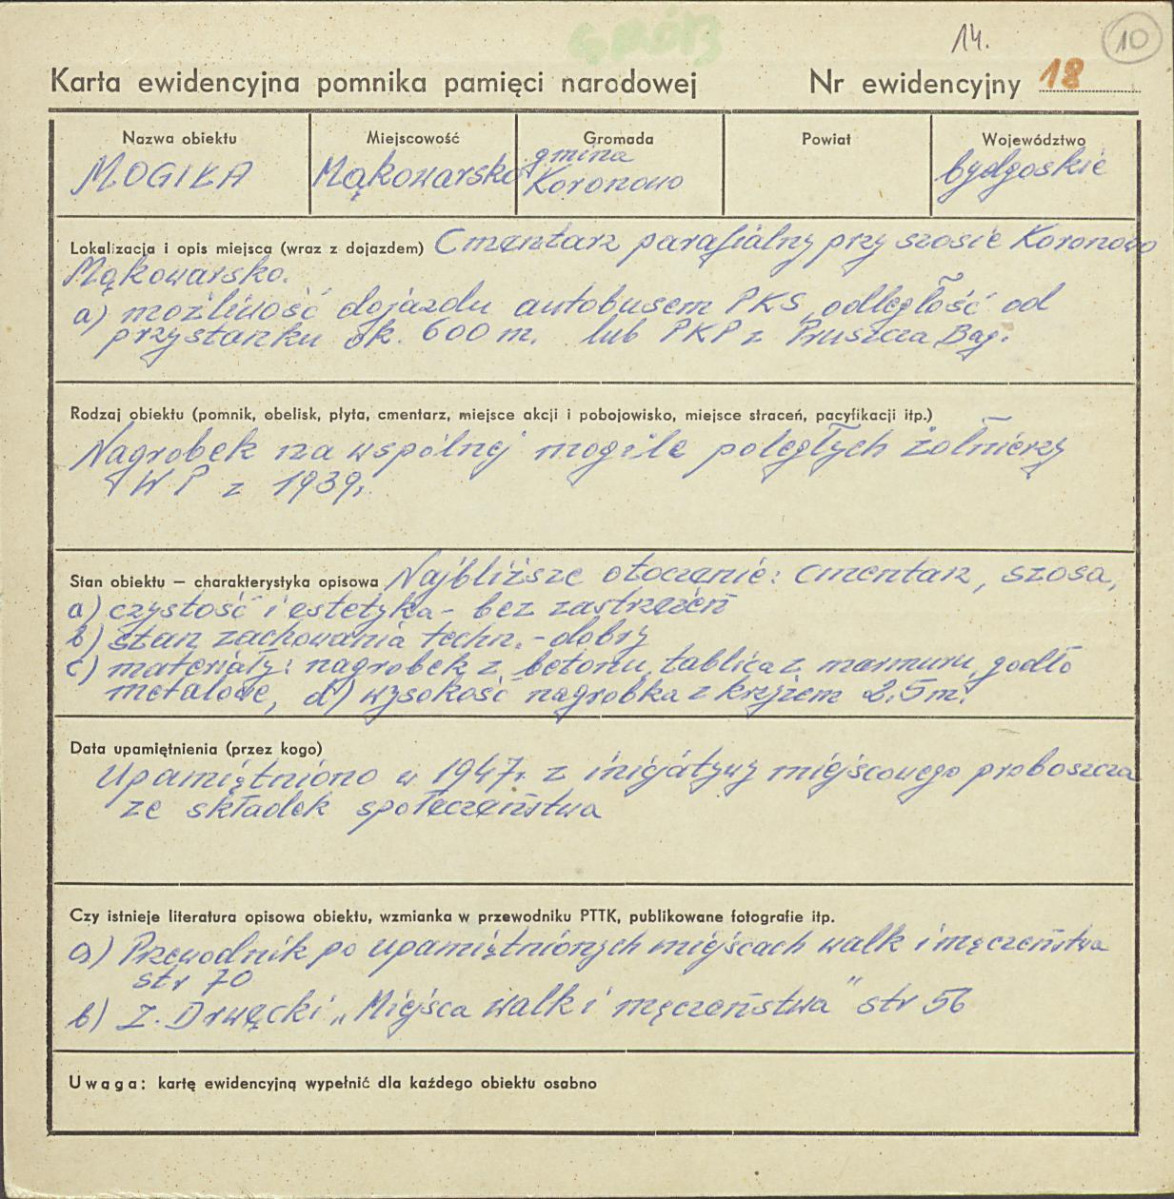 GRÓB
14.
10
Karta ewidencyjna pomnika pamięci narodowej Nr ewidencyjny 18
Nazwa obiektu
MOGIŁA
Miejscowość
Mąkowarsko
Gromada
gmina
Koronowo
Powiat
Województwo
bydgoskie
Lokalizacja i opis miejsca (wraz z dojazdem) Cmentarz parafialny przy szosie Koronowo
Mąkowarsko.
a) możliwość dojazdu autobusem PKS, odległość od
przystanku ok. 600 m. lub PKP z Pruszcza Bag.
Rodzaj obiektu (pomnik, obelisk, płyta, cmentarz, miejsce akcji i pobojowisko, miejsce straceń, pacyfikacji itp.)
Nagrobek na wspólnej mogile poległych żołnierzy
WP z 1939r.
Stan obiektu — charakterystyka opisowa Najbliższe otoczenie: cmentarz, szosa,
a) czystość i estetyka - bez zastrzeżeń
b) stan zachowania techn. - dobry
c) materiały: nagrobek z betonu, tablica z marmuru, godło
metalowe, d) wysokość nagrobka z krzyżem 2,5m.
Data upamiętnienia (przez kogo)
Upamiętniono w 1947r. z inicjatywy miejscowego proboszcza
ze składek społeczeństwa
Czy istnieje literatura opisowa obiektu, wzmianka w przewodniku PTTK, publikowane fotografie itp.
a) Przewodnik po upamiętnionych miejscach walk i męczeństwa
str 70
b) Z. Drwęcki „Miejsca walk i męczeństwa" str 56
Uwaga: kartę ewidencyjną wypełnić dla każdego obiektu osobno